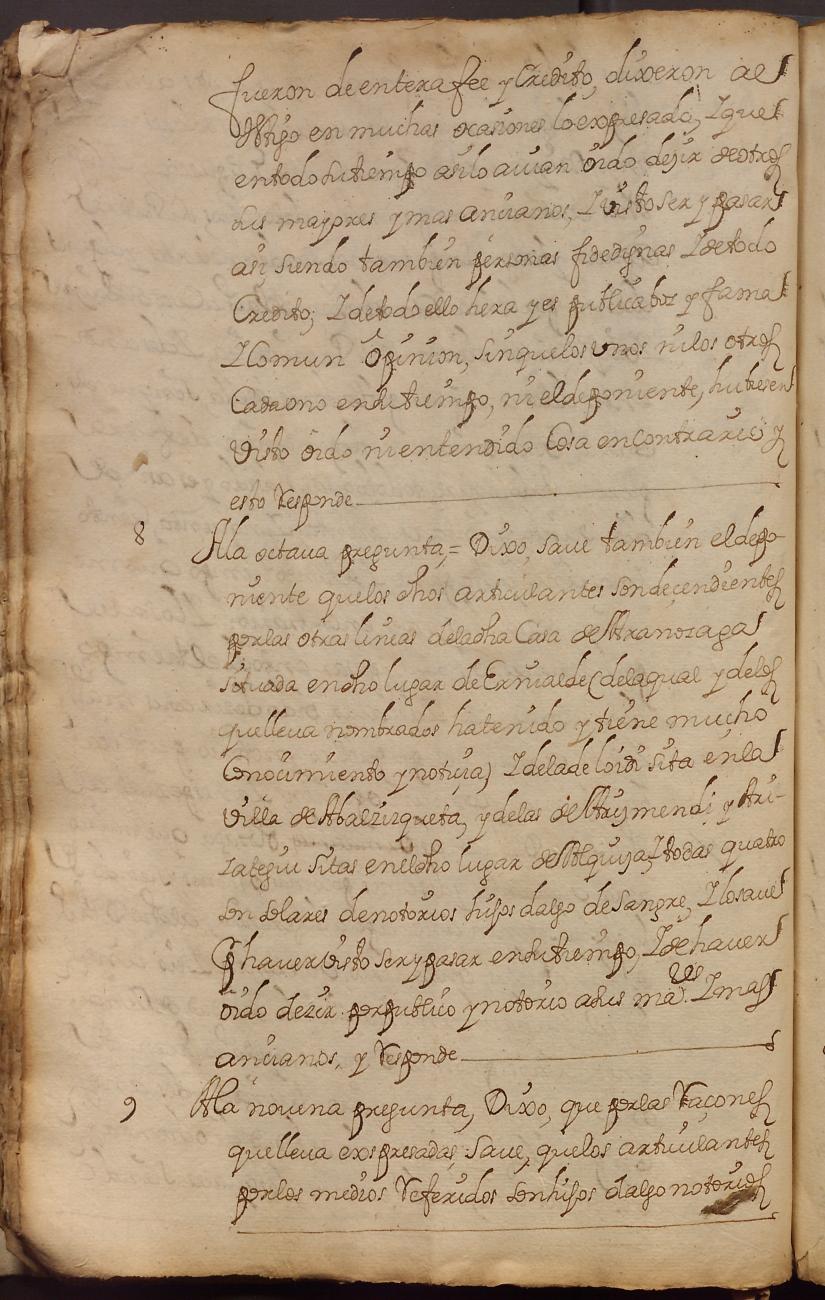 fueron de entera fee y Credito, dixeron al
testigo en muchas ocasiones lo expresado, I que
en todo su tiempo asi lo auian oido dezir de otros
sus mayores y mas ancianos, I visto ser y pasar
asi siendo tambien personas fidedignas I de todo
Credito; I de todo ello hera y es publica boz y fama
I Comun opinion, sin que los vnos ni los otros
Cada ono en su tiempo, ni el deponiente, hubiesen
visto oido ni entendido Cosa en contrario y
esto Responde
8 Ala octaua pregunta,= Dixo, saue tambien el depo-
niente que los dhos articulantes son decendientes
por las otras lineas de la dha Casa de Aranozaga
situada en dho lugar de Ernialde (de la qual y de los
que lleua nombrados ha tenido y tiene mucho
Conocimiento y noticia) I de la de loidi sita en la
villa de Abalzizqueta, y de las de Arijmendi y Ari-
zategui sitas en el dho lugar de Alquiza, I todas quatro
son solares de notorios hijos dalgo de sangre, I lo saue
Por hauer visto ser y pasar en su tiempo, I de hauer
oido dezir por publico y notorio a sus mares. I mas
ancianos, y Responde
9 Ala nouena pregunta, Dixo, que por las Raçones
que lleua exspresadas saue, que los articulantes
por los medios Referidos son hijos dalgo notorios